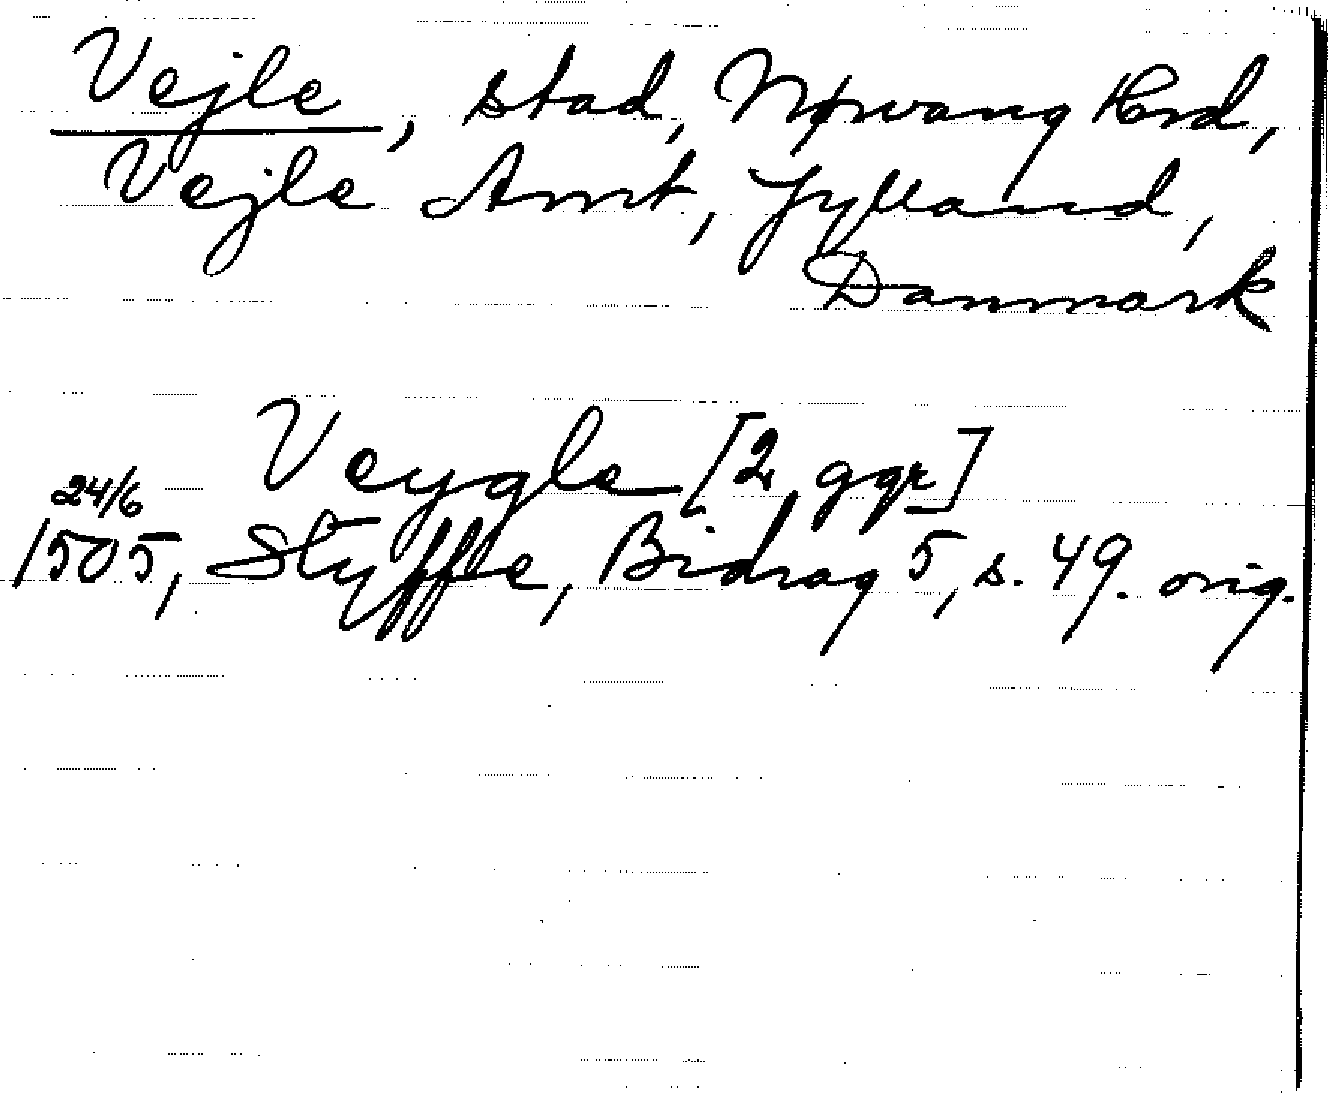 Vejle, stad, Nørvang Hrd,
Vejle Amt, Jylland,
Danmark
Veygle [2 ggr]
24/6
1505, Styffe, Bidrag 5, s. 49. orig.